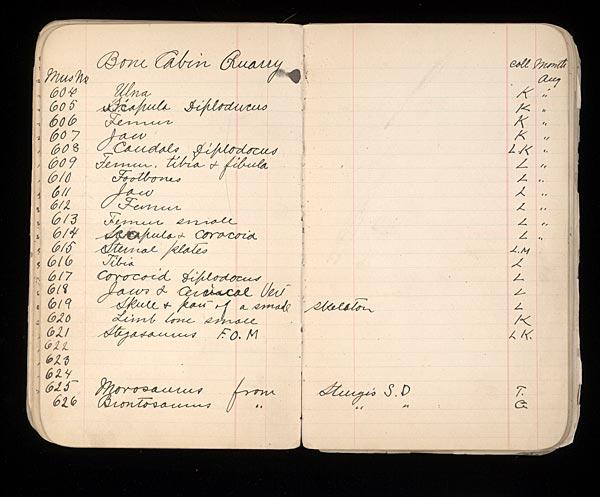 Bone Cabin Quarry Coll Month
Mus No Aug
604 Ulna K "
605 Scapula Diploducus K "
606 Femur K "
607 Jaw K "
608 Caudals Diplodocus L.K "
609 Femur, tibia & fibula L "
610 Footbones L "
611 Jaw L "
612 Femur L "
613 Femur small L "
614 Scapula & Coracoid L "
615 Sternal plates L.M
616 Tibia L
617 Corocoid Diplodocus L
618 Jaws & Vert L
619 Skull & part of a small skeleton L
620 Limb bone small K
621 Stegasaurus F.O.M L K.
622
623
624
625 Morosaurus from Sturgis S.D T.
626 Brontosaurus " " " G